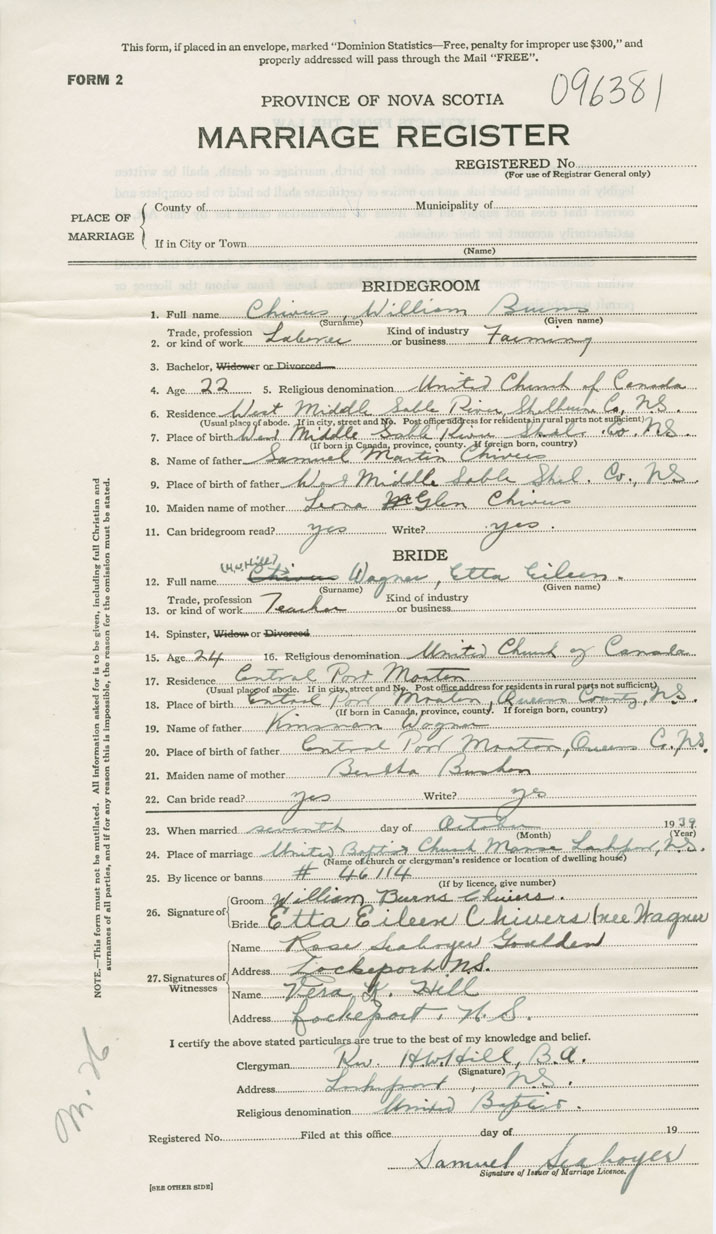 This form, if placed in an envelope, marked "Dominion Statistics—Free, penalty for improper use $300," and
properly addressed will pass through the Mail "FREE".
FORM 2
096381
PROVINCE OF NOVA SCOTIA
MARRIAGE REGISTER
REGISTERED No.
(For use of Registrar General only)
PLACE OF MARRIAGE
County of Municipality of
If in City or Town
(Name)
BRIDEGROOM
1. Full name Chivers, William Burns
(Surname) (Given name)
2. Trade, profession or kind of work Laborer Kind of industry or business Farming
3. Bachelor, Widower or Divorced
4. Age 22 5. Religious denomination United Church of Canada
6. Residence West Middle Sable River, Shelburne Co, N.S.
(Usual place of abode. If in city, street and No. Post office address for residents in rural parts not sufficient)
7. Place of birth West Middle Sable River Shel. Co. N.S.
(If born in Canada, province, county, if foreign born, country)
8. Name of father Samuel Martin Chivers
9. Place of birth of father West Middle Sable Shel. Co., N.S.
10. Maiden name of mother Leona McGlen Chivers
11. Can bridegroom read? yes Write? yes.
BRIDE
(H.W. Hill)
12. Full name Chivers Wagner, Etta Eileen.
(Surname) (Given name)
13. Trade, profession or kind of work Teacher Kind of industry or business
14. Spinster, Widow or Divorced
15. Age 24 16. Religious denomination United Church of Canada
17. Residence Central Port Mouton
(Usual place of abode. If in city, street and No. Post office address for residents in rural parts not sufficient)
18. Place of birth Central Port Mouton, Queens County, N.S.
(If born in Canada, province, county. If foreign born, country)
19. Name of father Kinsman Wagner
20. Place of birth of father Central Port Mouton, Queens Co. N.S.
21. Maiden name of mother Bertha
22. Can bride read? yes Write? yes
23. When married seventh day of October 1939
(Month) (Year)
24. Place of marriage United Baptist Church Manse Lockeport, N.S.
(Name of church or clergyman's residence or location of dwelling house)
25. By licence or banns # 46114
(If by licence, give number)
26. Signature of
Groom William Burns Chivers.
Bride Etta Eileen Chivers (nee Wagner
27. Signatures of Witnesses
Name Rose Seahoyer Goulden
Address Lockeport N.S.
Name Vera K. Hill
Address Lockeport, N.S.
I certify the above stated particulars are true to the best of my knowledge and belief.
Clergyman Rev. H.W. Hill, B.A.
(Signature)
Address Lockeport, N.S.
Religious denomination United Baptist.
Registered No. Filed at this office day of 19
Samuel Seahoyer
Signature of Issuer of Marriage Licence.
[SEE OTHER SIDE]
NOTE.—This form must not be mutilated. All information asked for is to be given, including full Christian and
surnames of all parties, and if for any reason this is impossible, the reason for the omission must be stated.